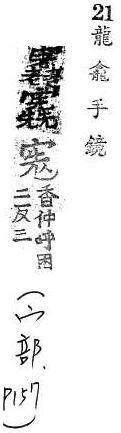 21 龍龕手鏡
香仲呼困
二反三
(宀部, P157)